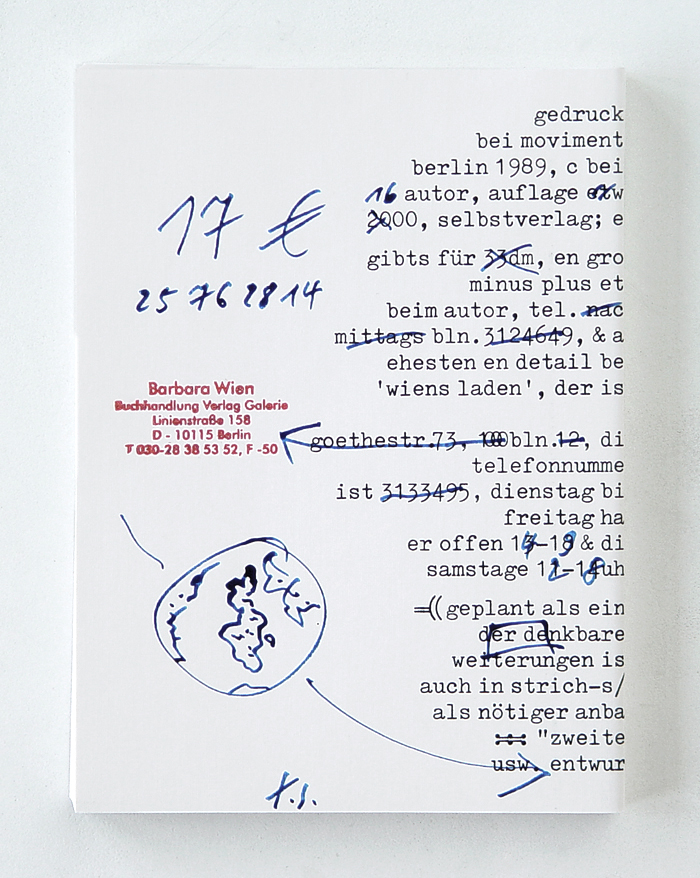 gedruck
bei moviment
berlin 1989, c bei
16 autor, auflage etw
2000, selbstverlag; e
17 €
gibts für 33dm, en gro
minus plus et
25 76 28 14
beim autor, tel. nac
mittags bln. 3124649, & a
ehesten en detail be
'wiens laden', der is
Barbara Wien
Buchhandlung Verlag Galerie
Linienstraße 158
D - 10115 Berlin
T 030-28 38 53 52, F -50
goethestr.73, 100bln.12, di
telefonnumme
ist 3133495, dienstag bi
freitag ha
er offen 14-19 & di
samstage 12-18uh
=((geplant als ein
der denkbare
weiterungen is
auch in strich-s/
als nötiger anba
"zweite
usw. entwur